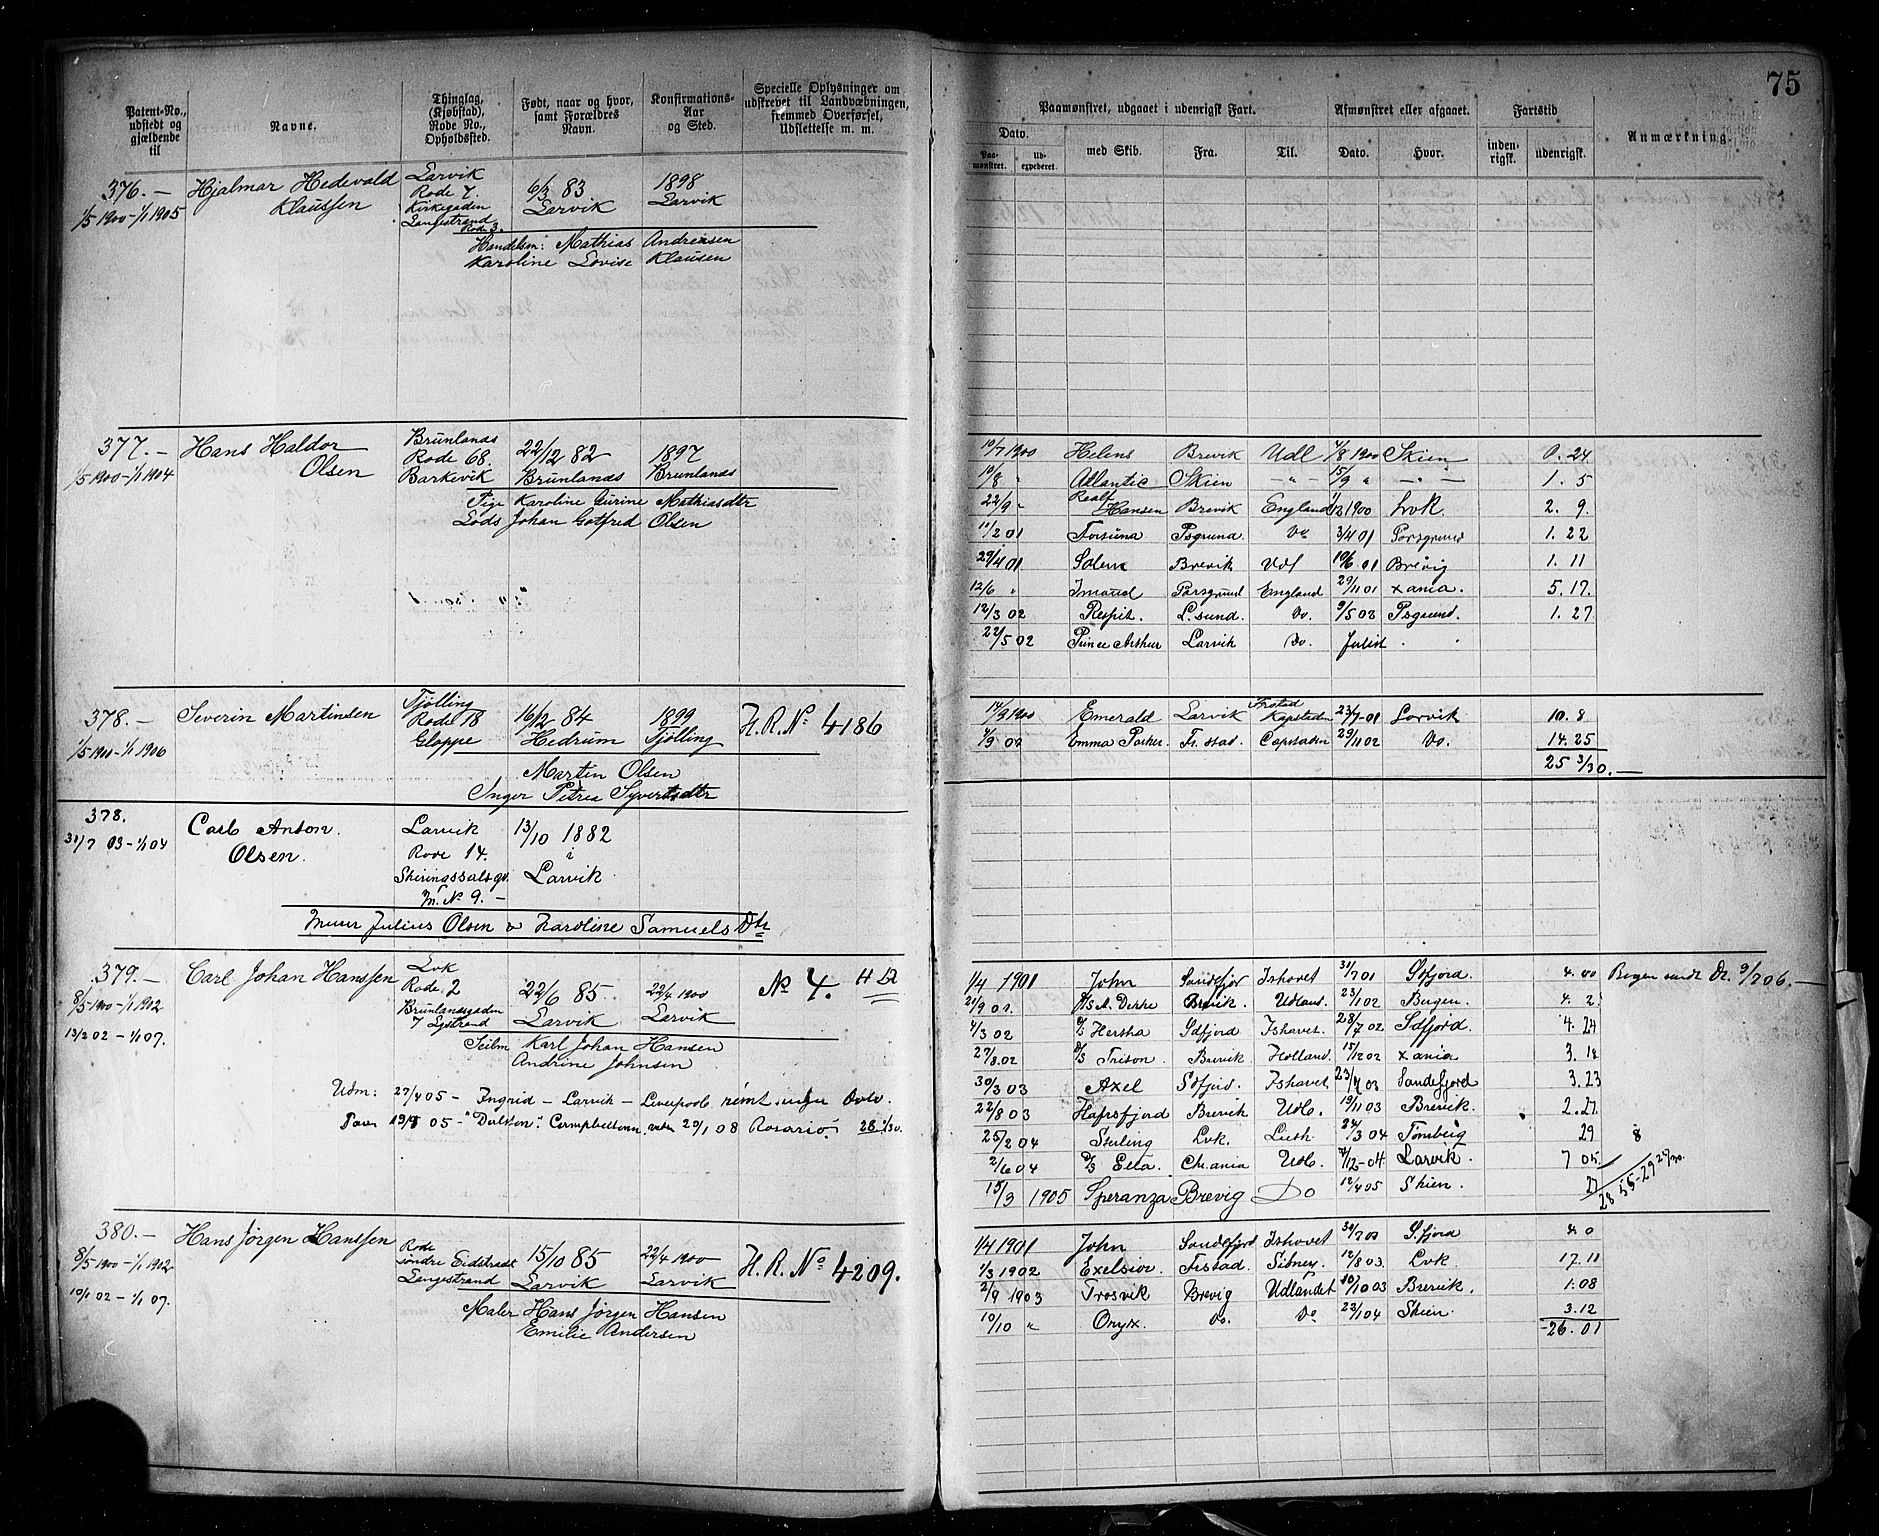 75
Patent-No., udstedt og gjældende til
Navne.
Thinglag, (Kjøbstad), Rode No., Opholdssted.
Født, naar og hvor, samt Forældres Navn.
Konfirmations-Aar og Sted.
Specielle Oplysninger om udskrevet til Landvæbningen, fremmed Overførsel, Udslettelse m. m.
Paamønstret, udgaaet i udenrigsk Fart.
Afmønstret eller afgaaet.
Fartstid
Anmærkning.
Dato.
Paa-mønstret.
Ud-expederet.
med Skib.
Fra.
Til.
Dato.
Hvor.
inden-rigsk.
udenrigsk.
376.— Hjalmar Hedevald Larvik
Klaussen Rode 7 6/3 83 1898
1/5 1900-1/1 1905 Kirkegaden Larvik Larvik
Langestrand
Rode 3.
Handelsm: Mathias Andreasen
Karoline Lovise Klausen
377.— Hans Haldor Brunlanæs 22/2 82 1897
Olsen Rode 68. Brunlanæs Brunlanæs
1/5 1900-1/1 1904 Barkevik
Pige Karoline Gurine Mathiasdtr
Lods Johan Gotfred Olsen
10/7 1900 Helens Brevik Udl 4/8 1900 Skien 0. 24
10/8 " Atlantic Skien — " — 15/9 " — " — 1. 5
22/9 " Hansen Brevik England 1/12 1900 Lvk. 2. 9.
10/2 01 Porsgrund. Do 3/4 01 Porsgrund 1. 22
29/4 01 Solem Brevik Udl 10/6 01 Brevig 1. 11
12/6 " Porsgrund England 29/11 01 Xania. 5. 17.
12/3 02 Respit. L. sund. Do. 9/5 02 Psgrund. 1. 27
22/5 02 Prince Arthur Larvik Do.
378.— Severin Martinsen Tjølling 16/2 84 1899 H.R. No 4186
1/5 1900-1/1 1906 Rode 18 Hedrum Tjølling
Gloppe
Marten Olsen
Inger Petrea Syvertsdtr
14/9 1900 Emerald Larvik Kapstaden 23/7-01 Larvik 10. 8
Emma Parker. Fr. stad. Capstaden 29/11 02 Do. 14. 25
25 3/30.—
378.
Carl Anton. Larvik 13/10 1882
31/7 03-1/1 04 Olsen. Rode 14. i
Skiringssalsgd. Larvik
M. No 9.—
Murer Julius Olsen & Karoline Samuels Dtr
379.— Carl Johan Hanssen Lvk No 4.
8/5 1900-1/1 1902 Rode 2 22/6 85 22/4 1900
Brunlandsgaden Larvik Larvik
13/2 02-1/1 07.
Seilm Karl Johan Hansen
Andrine Johnsen
Udm: 27/4 05 — Ingrid — Larvik — Liverpool.
1/4 1901 John Sandefjor Ishavet 31/7 01 Sdfjord. 4. 00
21/9 01. Brevik. Udland. 23/1 02 Bergen. 4. 2
4/3 02 D/S Hertha Sdfjord Ishavet. 28/7 02 Sdfjord. 4. 24
27/8 02 Brevik. Holland. 15/12 02 Xania 3. 18
30/3 03 Axel Sdfjord. Ishavet 23/7 03 Sandefjord 3. 23
22/8 03 Hafrsfjord Brevik Udl. 19/11 03 Brevik. 2. 27
25/2 04 Sterling Lvk. Leith. 24/3 04 Tønsberg 29
2/6 04 Ella. Ch.ania Udl. 7/12-04 Larvik. 7 05
15/3 1905 Speranza Brevig Do 12/4 05 Skien. 27
380.— Hans Jørgen Hanssen Rode 15/10 85 22/4 1900 H.R. No 4209.
8/5 1900-1/1 1902 søndre Eidstrædt Larvik Larvik
Langestrand
10/1 02-1/1 07.
Maler Hans Jørgen Hansen
Emilie Andersen
1/4 1901 John Sandefjord Ishavet S.fjord 4. 0
1/3 1902 Exelsior. Fr.stad. Sidney. 12/8 03. Lvk. 17. 11
2/9 1903 Trosvik Brevig Udlandet 10/10 03 Brevik. 1.08
10/10 " Onyx. Do. Do 23/1 04 Skien. 3.12
26. 01